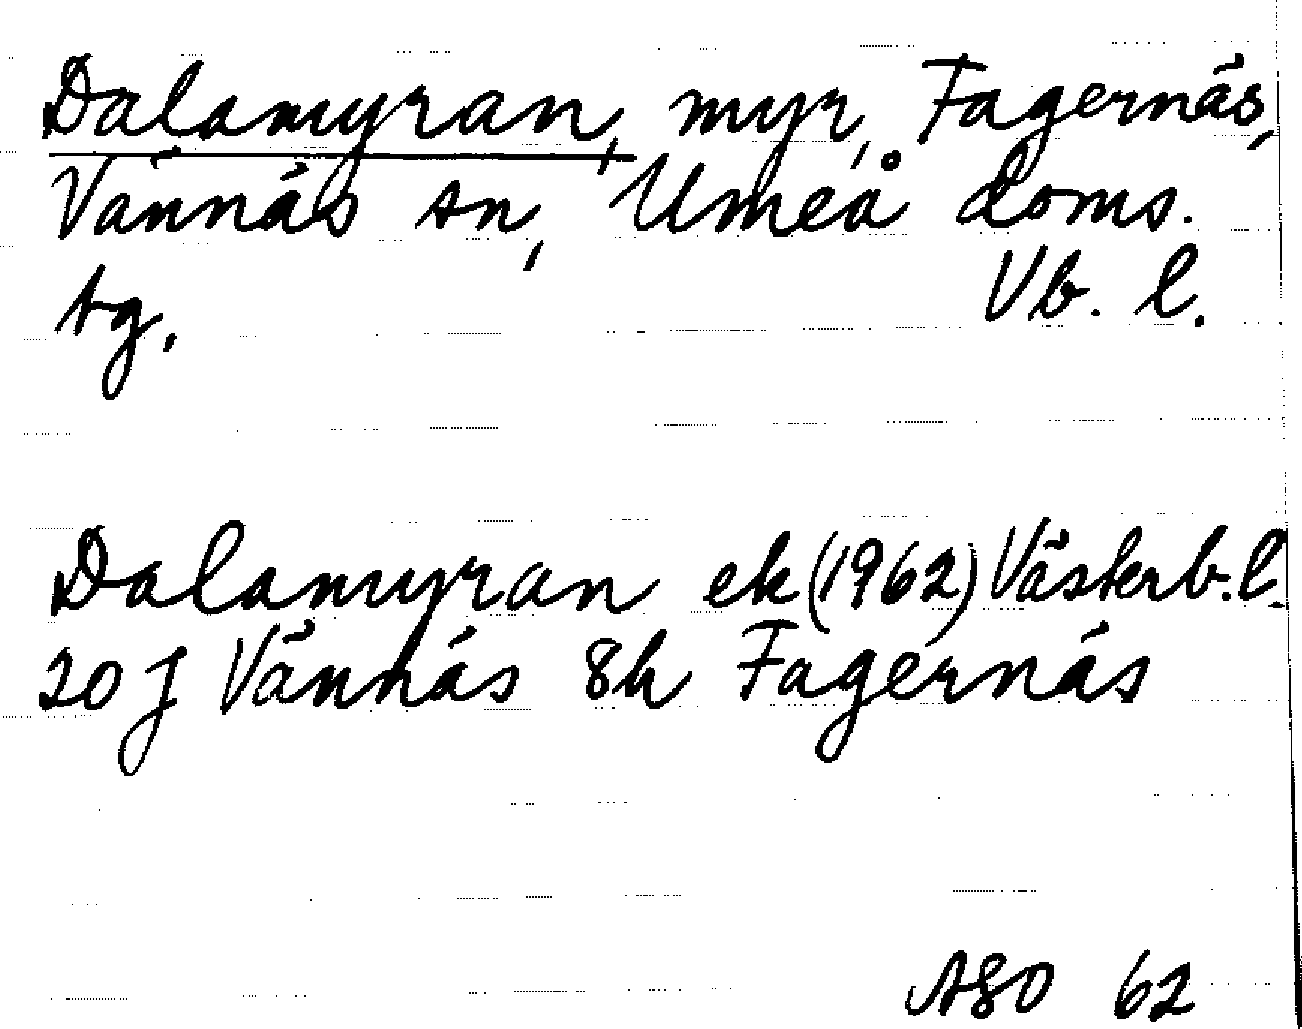 Dalamyran, myr, Fagernäs,
Vännäs sn, Umeå doms.
tg. Vb. l.
Dalamyran ek (1962) Västerb. l.
20 J Vännäs 8h Fagernäs
ASO 62